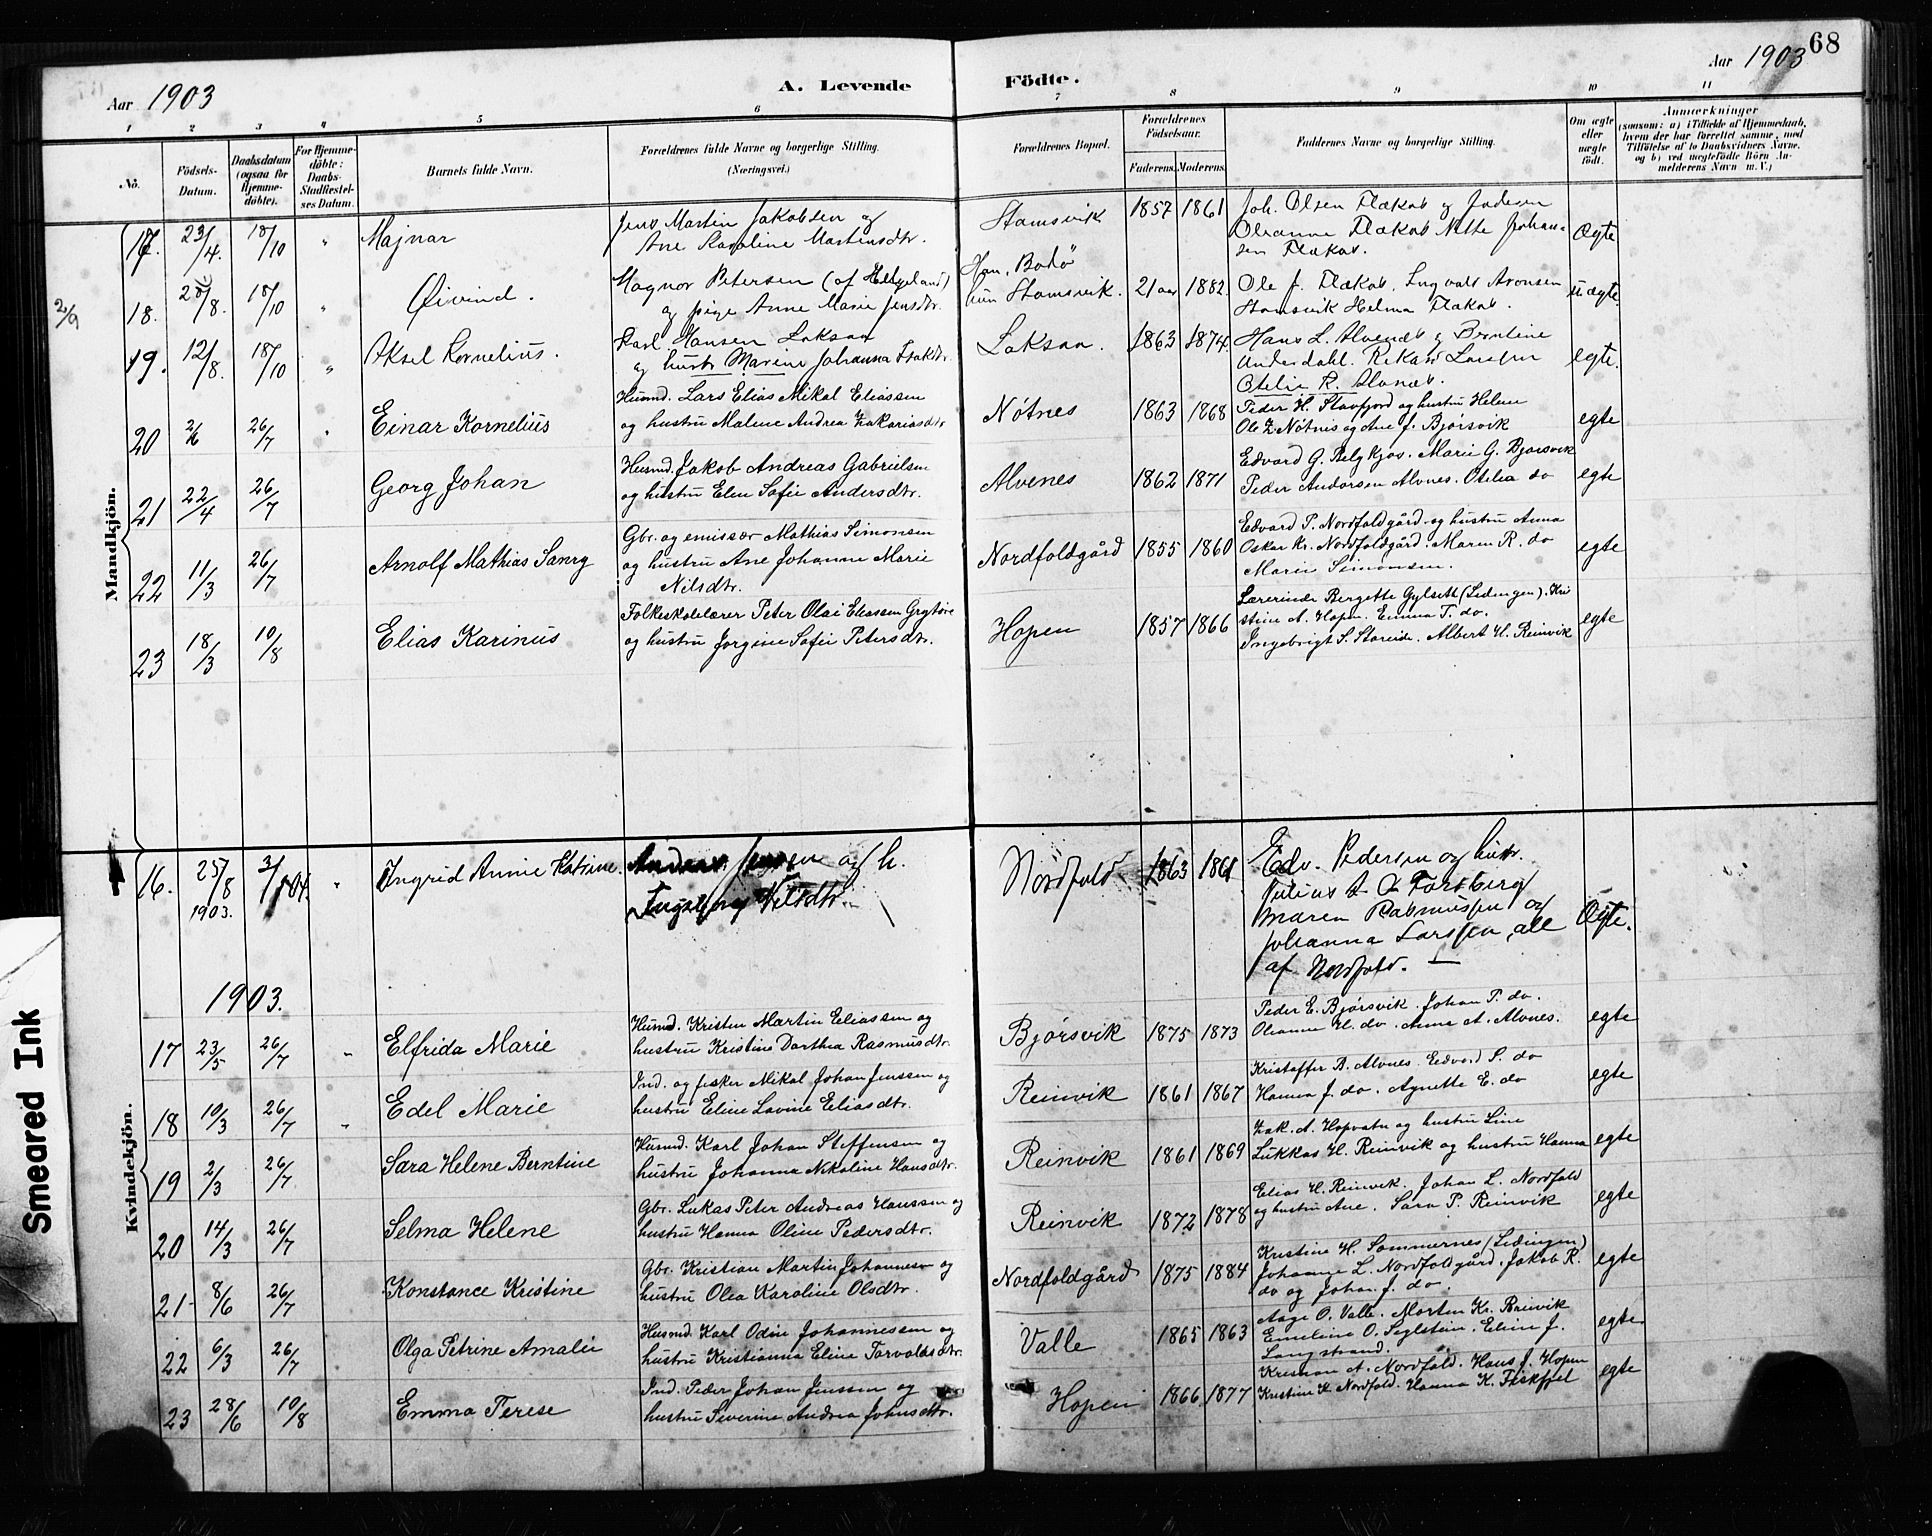 68
Aar 1903
A. Levende Födte.
Aar 1903
1 2 3 4 5 6 7 8 9 10 11
No.
Födsels-Datum.
Daabsdatum (ogsaa for Hjemme-döbte).
For Hjemme-döbte: Daabs-Stadfæstel-ses Datum.
Barnets fulde Navn.
Forældrenes fulde Navne og borgerlige Stilling.
(Næringsvei.)
Forældrenes Bopæl.
Forældrenes Födselsaar.
Faderens. Moderens.
Faddernes Navne og borgerlige Stilling.
Om ægte eller uægte födt.
Anmærkninger
(saasom: a) i Tilfælde af Hjemmedaab, hvem der har forrettet samme, med Tilföielse af to Daabsvidners Navne, og b) ved uægtefödte Börn Anmelderens Navn m. V.)
Mandkjön.
17. 23/4. 18/10 " Majnar
Jens Martin Jakobsen og
Ane Karoline Martensdtr.
Stamsvik 1857 1861
Joh. Olsen Flækob og
Oleanna Flækob Johan-
sen Flækob.
Ægte
2/9
18. 28/8. 18/10 " Øivind.
Magnor Petersen (af Helgeland)
og pige Anne Marie Jensdtr.
Han, Bodø
hun Stamsvik. 21 aar 1882.
Ole J. Flækob. Ingvald Aronsen
Stamsvik Helma Flækob.
uægte
19. 12/8. 18/10 " Aksel Kornelius.
Karl Hansen Laksaa
og hustr Marine Johanna Isakdtr.
Laksaa. 1863 1874.
Hans L. Alvenes og Berntine
Underdahl. Rikard Larsen
Otelie R. Alvnæs.
egte.
20 2/6 26/7 " Einar Kornelius
Husmd. Lars Elias Mikal Eliassen
og hustru Malene Andrea Zakariasdtr
Nøtnes 1863 1868
Peder H. Stavfjord og hustru Helene
Ole Z. Nøtnes og Ane J. Bjørsvik
egte
21 22/4 26/7 Georg Johan
Husmd. Jakob Andreas Gabrielsen
og hustru Elen Sofie Andersdtr.
Alvenes 1862 1871
Edvard G. Helgkjos. Marie G. Bjørsvik
Peder Andorsen Alvnes. Otelia do
egte
22 11/3 26/7 Arnolf Mathias Sanry
Gbr. og emissær Mathias Simonsen
og hustru Ane Johanna Marie
Nilsdtr.
Nordfoldgård 1855 1860
Edvard P. Nordfoldgård og hustru Anna
Oskar Kr. Nordfoldgård. Maren R. do
Marie Simonsen.
egte
23 18/3 10/8 Elias Karinus
Folkeskolelærer Peter Olai Eliassen Grytøre
og hustru Jørgine Sofie Petersdtr.
Hopen 1857 1866
Lærerinde Bergette Gylseth (Lødingen). Kri
stine A. Hopen. Emma T. do.
Ingebrigt S. Storeide. Albert H. Reinvik
egte
Kvindekjön.
16. 25/8 1903. 3/1 04. " Ingrid Annie Katrine
Andreas Jensen og h.
Ingeborg Nilsdtr.
Nordfold 1863 1861
Edv. Pedersen og hustr.
Julius A O Forsberg
Maren Rasmussen og
Johanna Larssen, alle
af Nordfold. —
Ægte.
1903.
17 23/5 26/7 " Elfrida Marie
Husmd. Kristen Martin Eliassen og
hustru Kristine Dorthea Rasmusdtr.
Bjørsvik 1875 1873
Peder E. Bjørsvik. Johan P. do.
Oleanna H. do. Anna A. Alvnes.
egte
18 10/3 26/7 " Edel Marie
Ind. og fisker Mikal Johan Jenssen og
hustru Eline Lovine Eliasdtr.
Reinvik 1861 1867
Kristoffer B. Alvnes. Edvard S. do
Hanna J. do. Agnette E. do
egte
19 2/3 26/7 Sara Helene Berntine
Husmd. Karl Johan Steffensen og
hustru Johanna Nikoline Hansdtr.
Reinvik 1861 1869
Zak. A. Hopvatn og hustru Line
Lukkas H. Reinvik og hustru Hanna
egte
20 14/3 26/7 Selma Helene
Gbr. Lukas Peter Andreas Hanssen og
hustru Hanna Oline Pedersdtr.
Reinvik 1872 1878
Elias H. Reinvik. Johan L. Nordfold
og hustru Ane. Sara P. Reinvik
egte
21 8/6 26/7 Konstance Kristine
Gbr. Kristian Martin Johannesen og
hustru Olea Karoline Olsdtr.
Nordfoldgård 1875 1884
Kristine H. Sommernes (Lødingen)
Johanne L. Nordfoldgård. Jakob R.
do og Johan J. do
egte
22 6/3 26/7 Olga Petrine Amalie
Husmd. Karl Odin Johannessen og
hustru Kristianna Eline Torvaldsdtr.
Valle 1865 1863
Aage O. Valle. Morten Kr. Breivik
Emeline O. Seglstein. Eline J.
Langstrand.
egte
23 28/6 10/8 Emma Terese
Ind. Peder Johan Jenssen og
hustru Severine Andrea Johnsdtr.
Hopen 1866 1877
Kristian A. Nordfold. Hans J. Hopen
Kristine K. Nordfold. Hanna K. Fiskfjel
egte
Smeared Ink